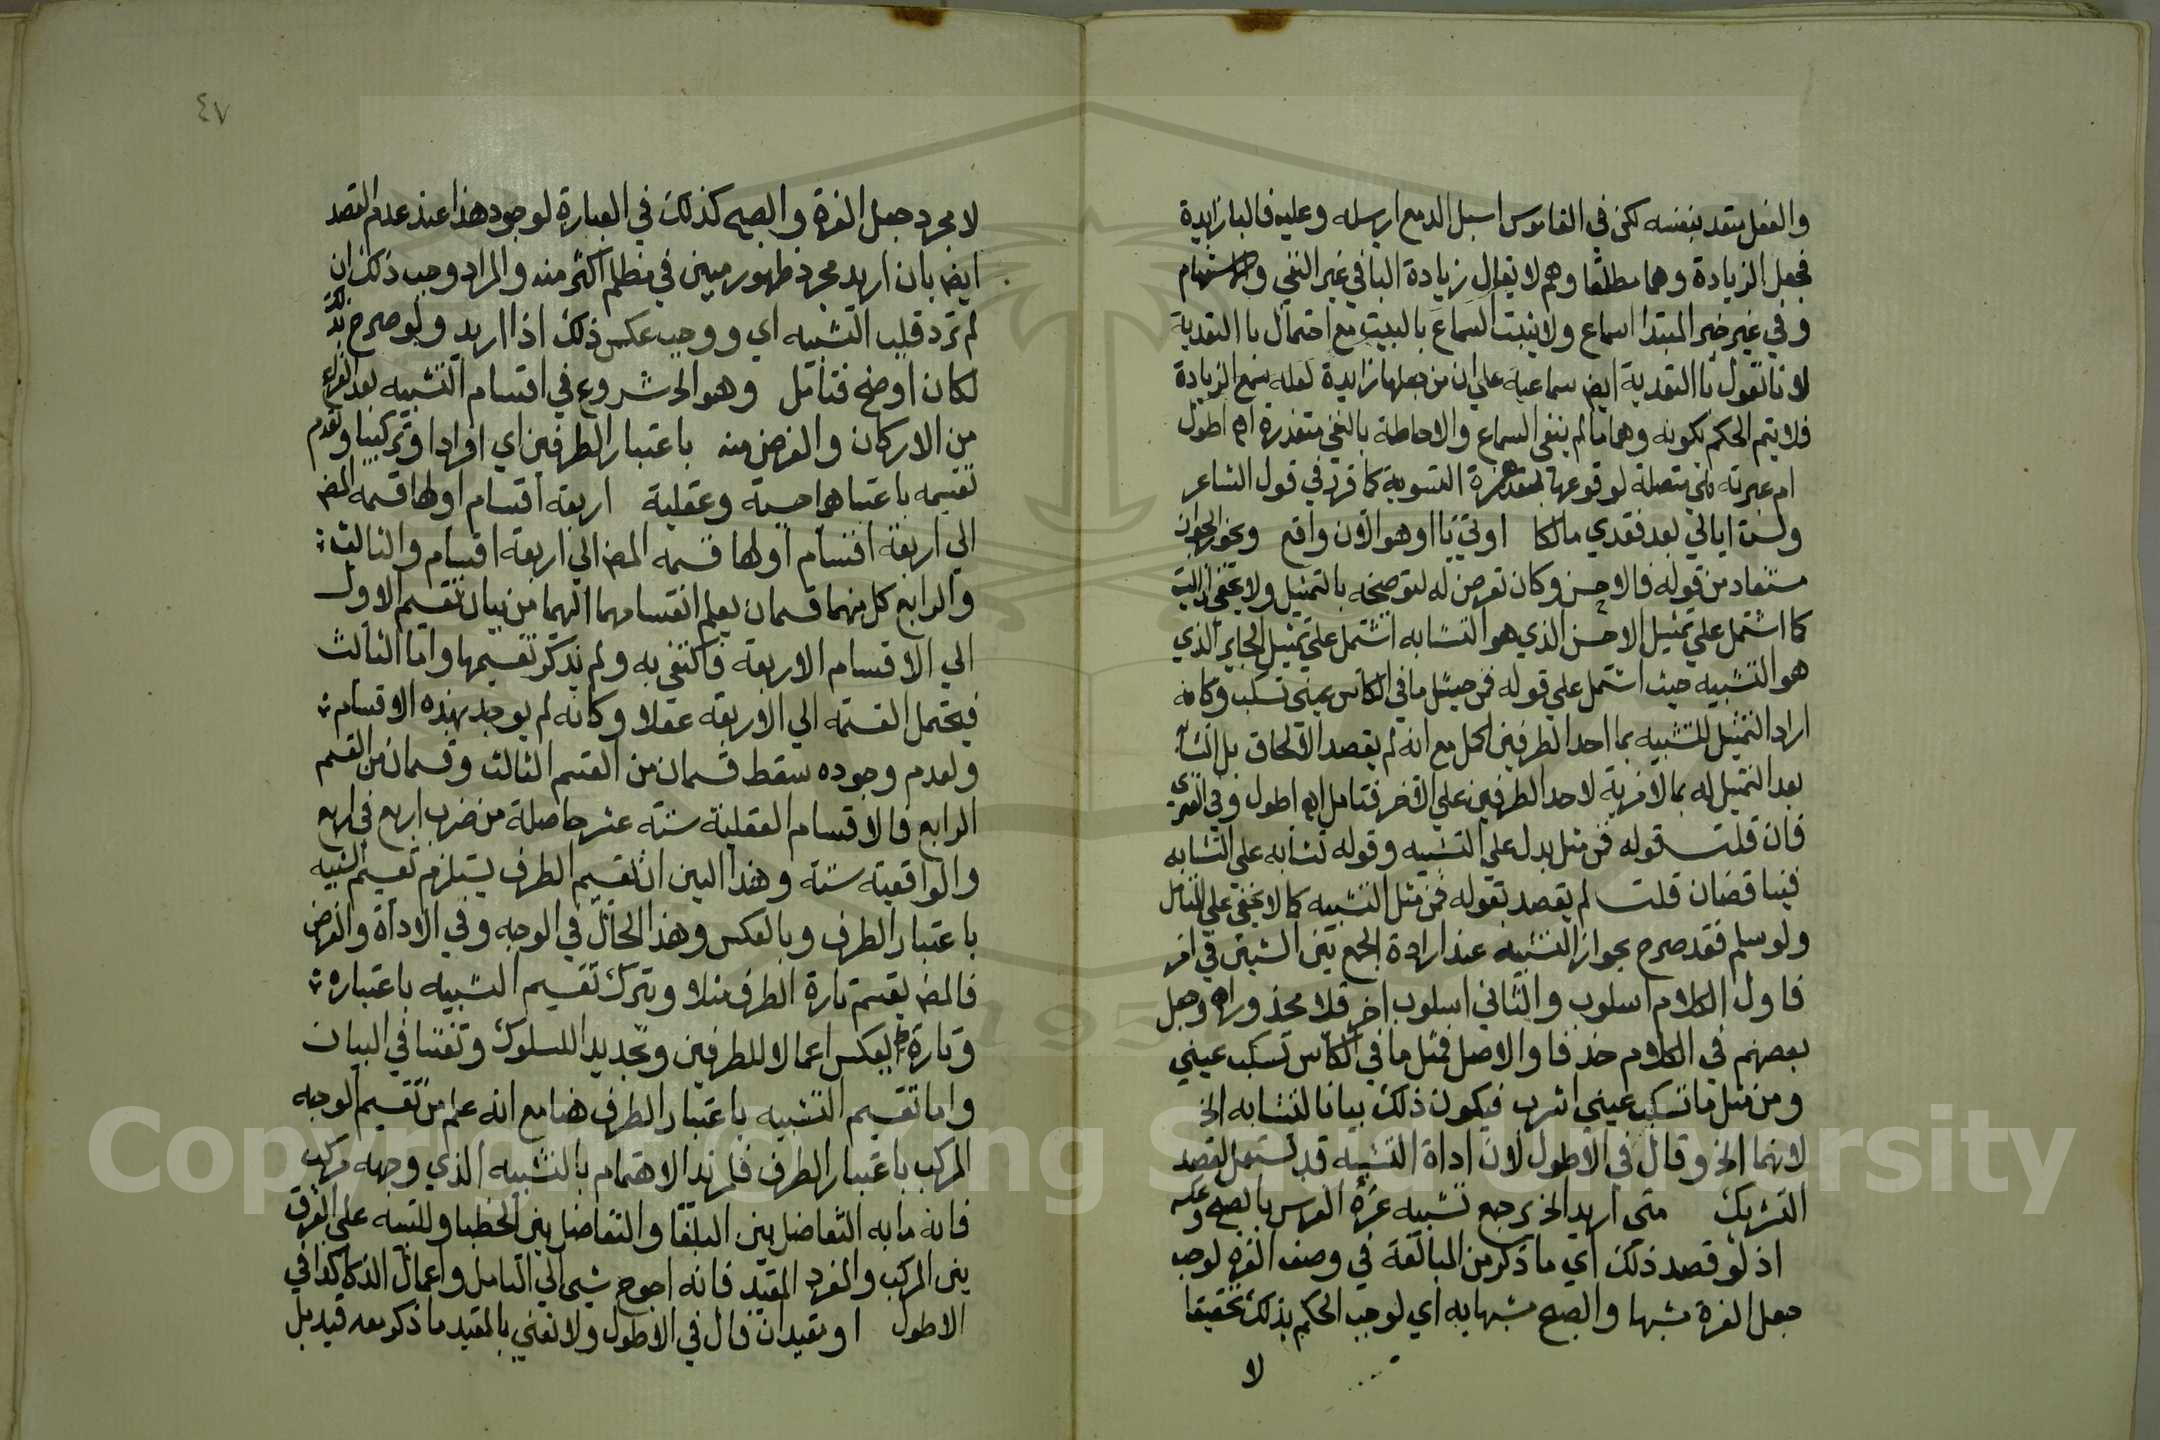 والفعل متعد بنفسه لكن في القاموس اسبل الدمع ارسله وعليه فالبا زايدة
فجعل الزيادة وهما مطلقا وهم لا يقال زيادة البا في غير النفي والاستفهام
وفي غير خبر المبتدا سماع ولا يثبت السماع بالبيت مع احتمال با التعدية
لانا نقول با التعدية ايض سماعية على ان من جعلها زايدة لعله سمع الزيادة
فلا يتم الحكم بكونه وهما ما لم ينفى السماع والاحاطة بالنفي متعذرة اه اطول
ام عبرته هي متصلة لوقوعها بعد همزة التسوية كما قرر في قول الشاعر
ولست ابالي بعد فقدي مالكا اموتي نا ام هو الان واقع ونحو الجواز
مستفاد من قوله فالاحسن وكان تعرض له لتوضيحه بالتمثيل ولا يخفى ان البيت
كما اشتمل على تمثيل الاحسن الذي هو التشابه اشتمل على تمثيل الجايز الذي
هو التشبيه حيث اشتمل على قوله فمن مثل ما في الكاس عيني تسكب وكانه
اراد التمثيل للتشبيه بما احد الطرفين اكمل مع انه لم يقصد الالحاق بل التشابه
بعد التمثيل له بما لا مزية لاحد الطرفين على الاخر فتامل اه اطول وفي الفنرى
فان قلت قوله فمن مثل يدل على التشبيه وقوله تشابه على التشابه
فيتناقضان قلت لم يقصد بقوله فمن مثل التشبيه كما لا يخفى على المتامل
ولو سلم فقد صرح بجواز التشبيه عند ارادة الجمع بين الشيئين في امر
فاول الكلام اسلوب والثاني اسلوب اخر فلا محذور اه وجعل
بعضهم في الكلام حذفا والاصل فمثل ما في الكاس تسكب عيني
ومن مثل ما تسكب عيني اشرب فيكون ذلك بيانا لتشابه الخ
لانهما الخ وقال في الاطول لان اداة التشبيه قد تستعمل لقصد
التشريك متى اريد الخ يرجع تشبيه غرة الفرس بالصبح وعكسه
اذ لو قصد ذلك اي ما ذكر من المبالغة في وصف الغرة لوجب
جعل الغرة مشبها والصبح مشبها به اي لوجب الحكم بذلك تحقيقا
لا
٤٧
لا مجرد جعل الغرة والصبح كذلك في العبارة لوجود هذا عند عدم القصد
ايض بان اريد مجرد ظهور مبين في مظلم اكثر منه والمراد وجب ذلك ان
لم ترد قلب التشبيه اي ووجب عكس ذلك اذا اريد ولو صرح بذلك
لكان اوضح فتامل وهو الخ شروع في اقسام التشبيه بعد الفراغ
من الاركان والغرض منه باعتبار الطرفين اي افرادا وتركيبا وتقدم
تقسيمه باعتبارهما حسية وعقلية اربعة اقسام اولها قسمه المص
الى اربعة اقسام اولها قسمه المص الى اربعة اقسام والثالث
والرابع كل منهما قسمان يعلم انقسامهما اليهما من بيان تقسيم الاول
الى الاقسام الاربعة فاكتفى به ولم يذكر تقسيمها واما الثالث
فيحتمل القسمة الى الاربعة عقلا وكانه لم يوجد بهذه الاقسام
ولعدم وجوده سقط قسمان من القسم الثالث وقسمان من القسم
الرابع فالاقسام العقلية ستة عشر حاصلة من ضرب اربع في اربع
والواقعية ستة وهذا البين ان تقسيم الطرف يستلزم تقسيم التشبيه
باعتبار الطرف وبالعكس وهذا الحال في الوجه وفي الاداة والغرض
فالمص يقسم تارة الطرف مثلا ويترك تقسيم التشبيه باعتباره
وتارة بالعكس اعمالا للطرفين وتجديد اللسلوك وتفننا في البيان
واما تقسيم التشبيه باعتبار الطرف هنا مع انه علم من تقسيم الوجه
المركب باعتبار الطرف فلمزيد الاهتمام بالتشبيه الذي وجهه مركب
فانه ما به التفاضل بين البلغا والتفاضل بين الخطبا وللتنبيه على الفرق
بين المركب والمفرد المقيد فانه احوج شيى الى التامل واعمال الذكا كذا في
الاطول او مقيدان قال في الاطول ولا نعني بالمقيد ما ذكر معه قيد بل